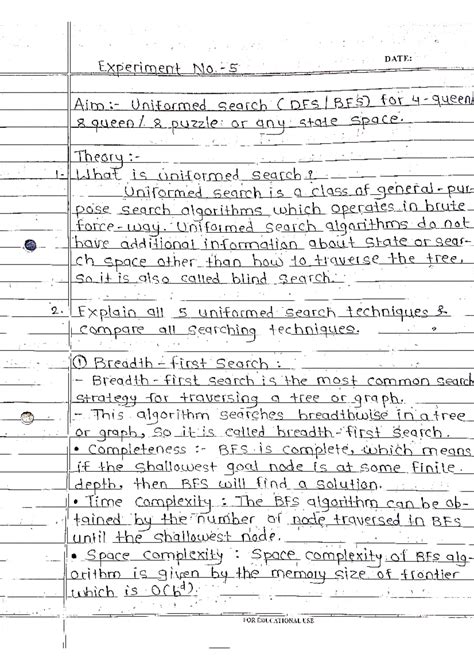 DATE:
Experiment No.-5
Aim:- Uniformed search (DFS/BFS) for 4-queen
8 queen/ 8 puzzle or any state space.
Theory :-
1. What is uniformed search?
Uniformed search is a class of general-pur-
pose search algorithms which operates in brute
force-way. Uniformed search algorithms do not
have additional information about state or sear-
ch space other than how to traverse the tree,
so it is also called blind search.
2. Explain all 5 uniformed search techniques &
compare all searching techniques.
① Breadth-first Search :
- Breadth-first search is the most common search
strategy for traversing a tree or graph.
- This algorithm searches breadthwise in a tree
or graph, so it is called breadth-first search.
• Completeness :- BFS is complete, which means
if the shallowest goal node is at some finite
depth, then BFS will find a solution.
• Time Complexity : The BFS algorithm can be ob-
tained by the number of node traversed in BFS
until the shallowest node.
• Space complexity : Space complexity of BFS alg-
orithm is given by the memory size of frontier
which is O(b^d).
FOR EDUCATIONAL USE